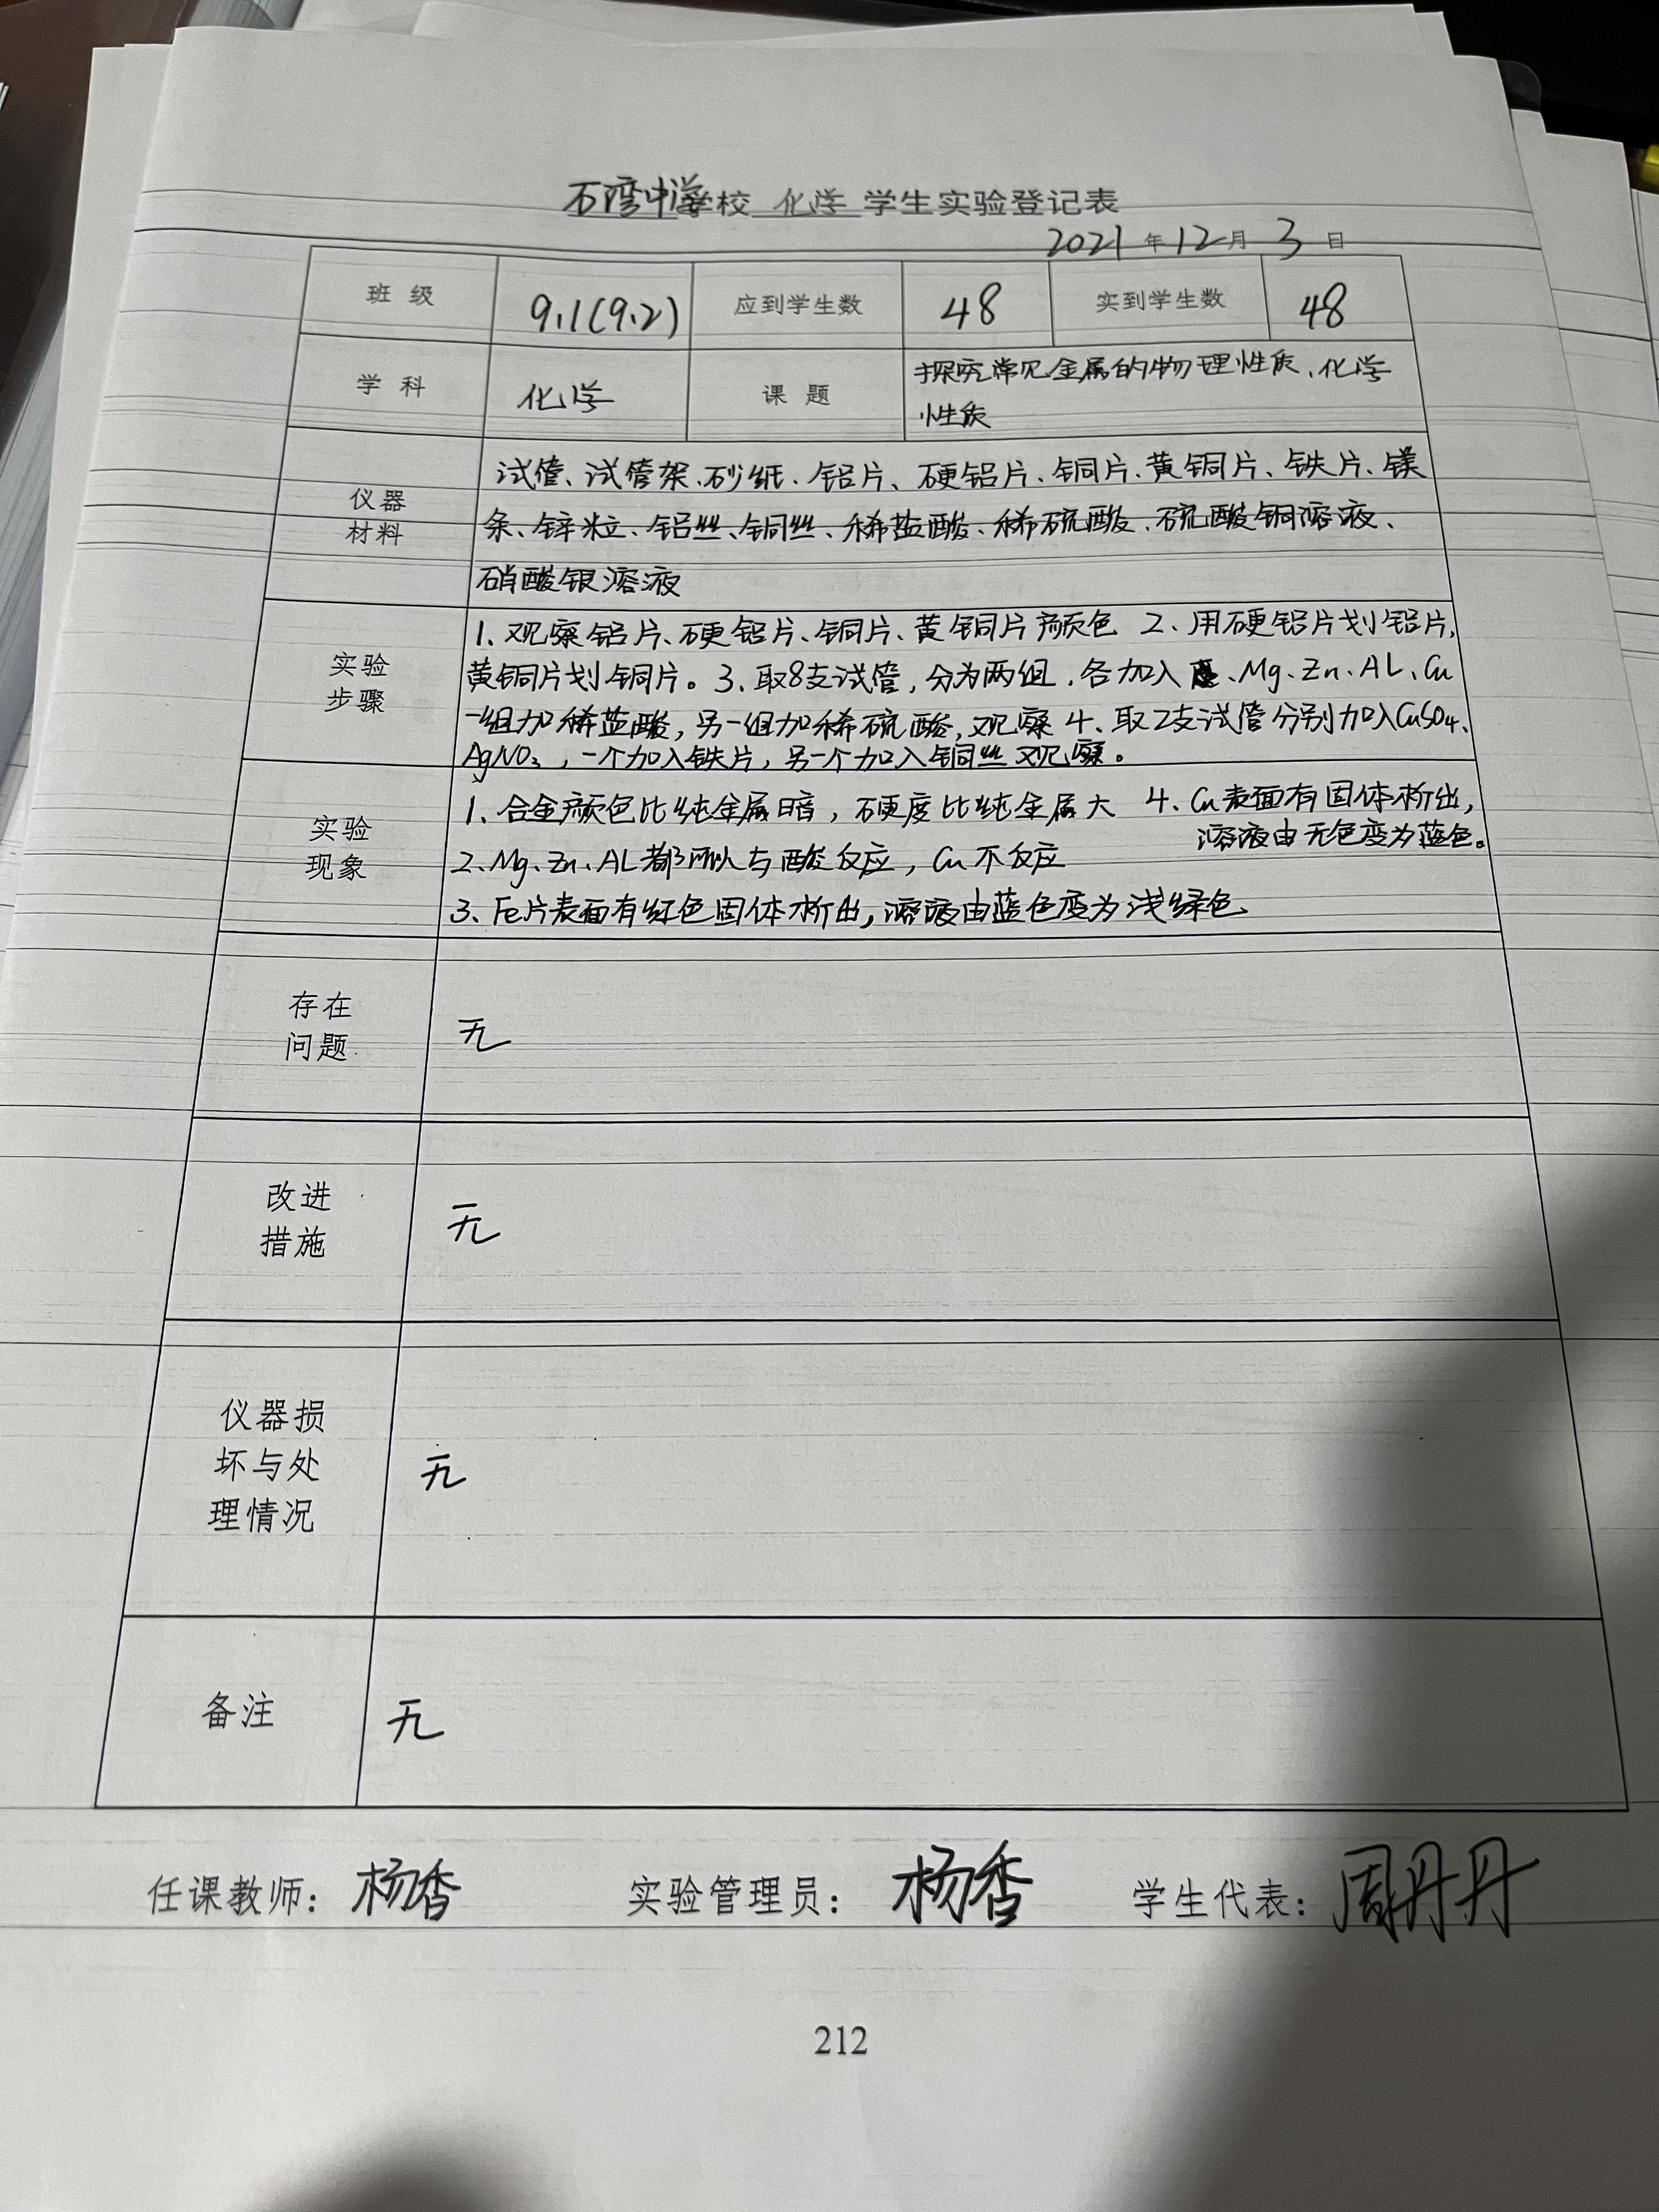 石湾中学学校 化学 学生实验登记表
2021 年 12 月 3 日
班 级 9.1(9.2) 应到学生数 48 实到学生数 48
学 科 化学 课 题 探究常见金属的物理性质、化学
性质
仪器
材料
试管、试管架、砂纸、铝片、硬铝片、铜片、黄铜片、铁片、镁
条、锌粒、铝丝、铜丝、稀盐酸、稀硫酸、硫酸铜溶液、
硝酸银溶液
实验
步骤
1、观察铝片、硬铝片、铜片、黄铜片颜色 2、用硬铝片划铝片,
黄铜片划铜片。3、取8支试管,分为两组,各加入、Mg、Zn、AL、Cu
一组加稀盐酸,另一组加稀硫酸,观察 4、取2支试管分别加入CuSO4、
AgNO3,一个加入铁片,另一个加入铜丝观察。
实验
现象
1、合金颜色比纯金属暗,硬度比纯金属大 4、Cu表面有固体析出,
溶液由无色变为蓝色。
2、Mg、Zn、AL都可以与酸反应,Cu不反应
3、Fe片表面有红色固体析出,溶液由蓝色变为浅绿色
存在
问题
无
改进
措施
无
仪器损
坏与处
理情况
无
备注
无
任课教师:杨香 实验管理员:杨香 学生代表:周丹丹
212